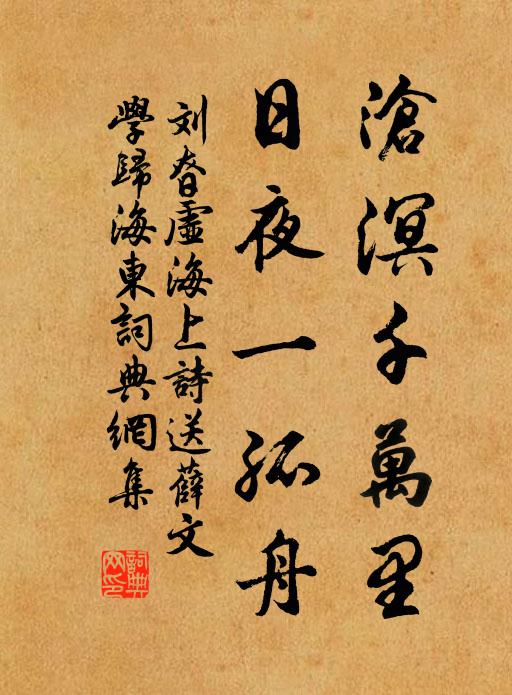 滄溟千萬里
日夜一孤舟
刘昚虛海上詩送薛文
學歸海東詞典網集
詞典网印